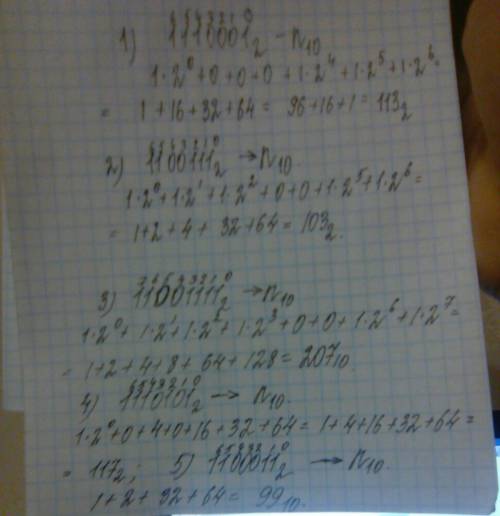 6 5 4 3 2 1 0
1) 1110001₂ → n₁₀
1·2⁰+0+0+0+1·2⁴+1·2⁵+1·2⁶=
= 1+16+32+64= 96+16+1=113₂
6 5 4 3 2 1 0
2) 1100111₂ → n₁₀.
1·2⁰+1·2¹+1·2²+0+0+1·2⁵+1·2⁶=
= 1+2+4+ 32+64= 103₂.
7 6 5 4 3 2 1 0
3) 11001111₂ → n₁₀
1·2⁰+1·2¹+1·2²+1·2³+0+0+1·2⁶+1·2⁷=
= 1+2+4+8+64+128= 207₁₀.
6 5 4 3 2 1 0
4) 1110101₂ → n₁₀.
1·2⁰+0+4+0+16+32+64= 1+4+16+32+64=
6 5 4 3 2 1 0
= 117₂; 5) 1100011₂ → n₁₀.
1+2+32+64= 99₁₀.